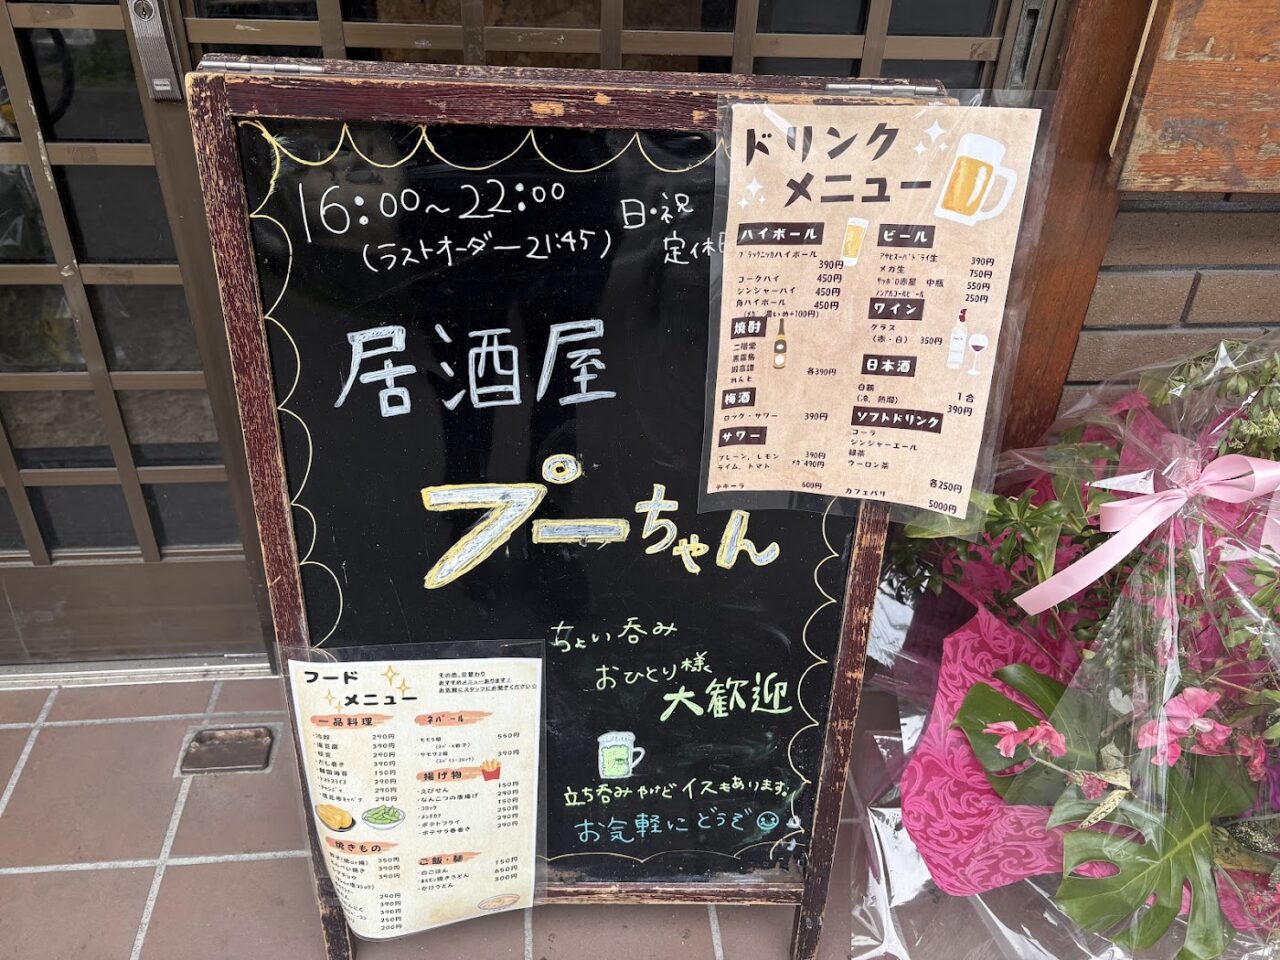 16:00~22:00
(ラストオーダー21:45)
日・祝
定休日
居酒屋
プーちゃん
ちょい呑み
おひとり様
大歓迎
立ち呑みやけどイスもあります。
お気軽にどうぞ
ドリンク
メニュー
ハイボール
ブラックニッカハイボール
390円
コークハイ 450円
ジンジャーハイ 450円
角ハイボール 450円
(メガ 濃いめ+100円)
焼酎
二階堂
黒霧島
鍛高譚
れんと 各390円
梅酒
ロック・サワー 390円
サワー
プレーン、レモン 390円
ライム、トマト メガ 490円
テキーラ 600円
ビール
アサヒスーパードライ生 390円
メガ生 750円
サッポロ赤星 中瓶 550円
ノンアルコールビール 250円
ワイン
グラス
(赤・白) 350円
日本酒
白鶴 1合
(冷、熱燗) 390円
ソフトドリンク
コーラ
ジンジャーエール
緑茶
ウーロン茶
各250円
カフェパリ 5000円
フード
メニュー
その他、日替わり
おすすめメニューあります!
お気軽にスタッフにお聞きください
一品料理
・冷奴 290円
・湯豆腐 390円
・枝豆 290円
・だし巻き 390円
・韓国海苔 150円
・トマトスライス 290円
・チャンジャ 290円
・塩昆布キャベツ 290円
焼きもの
390円
290円
390円
390円
250円
200円
ネパール
・モモ5個 550円
・サモサ2個 390円
揚げ物
・えびせん 150円
・なんこつの唐揚げ 290円
・コロッケ 150円
・メンチカツ 250円
・ポテトフライ 290円
・ポテサラ春巻き 290円
ご飯・麺
・白ごはん 150円
・ホルモン焼きうどん 650円
・かけうどん 300円